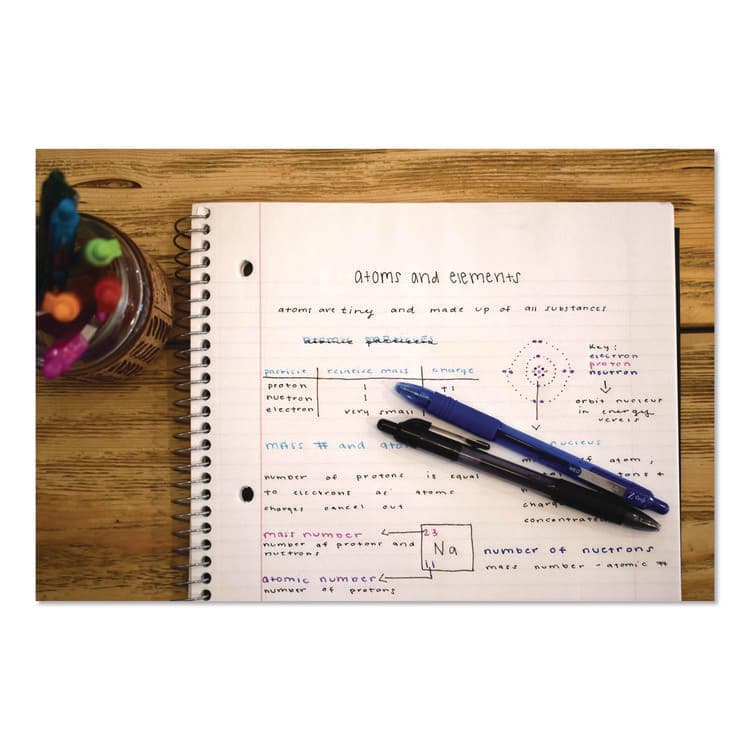 atoms and elements
atoms are tiny and made up of all substances
atomic particles
particle relative mass charge
proton 1 +1
nuetron 1
electron very small
key:
electron
proton
neutron
orbit nucleus
in energy
levels
mass # and
nucleus
of atom,
number of protons is equal
to electrons as atoms
charges cancel out
mass number
number of protons and
nuetrons
23
Na
11
atomic number
number of protons
number of nuetrons
mass number - atomic #